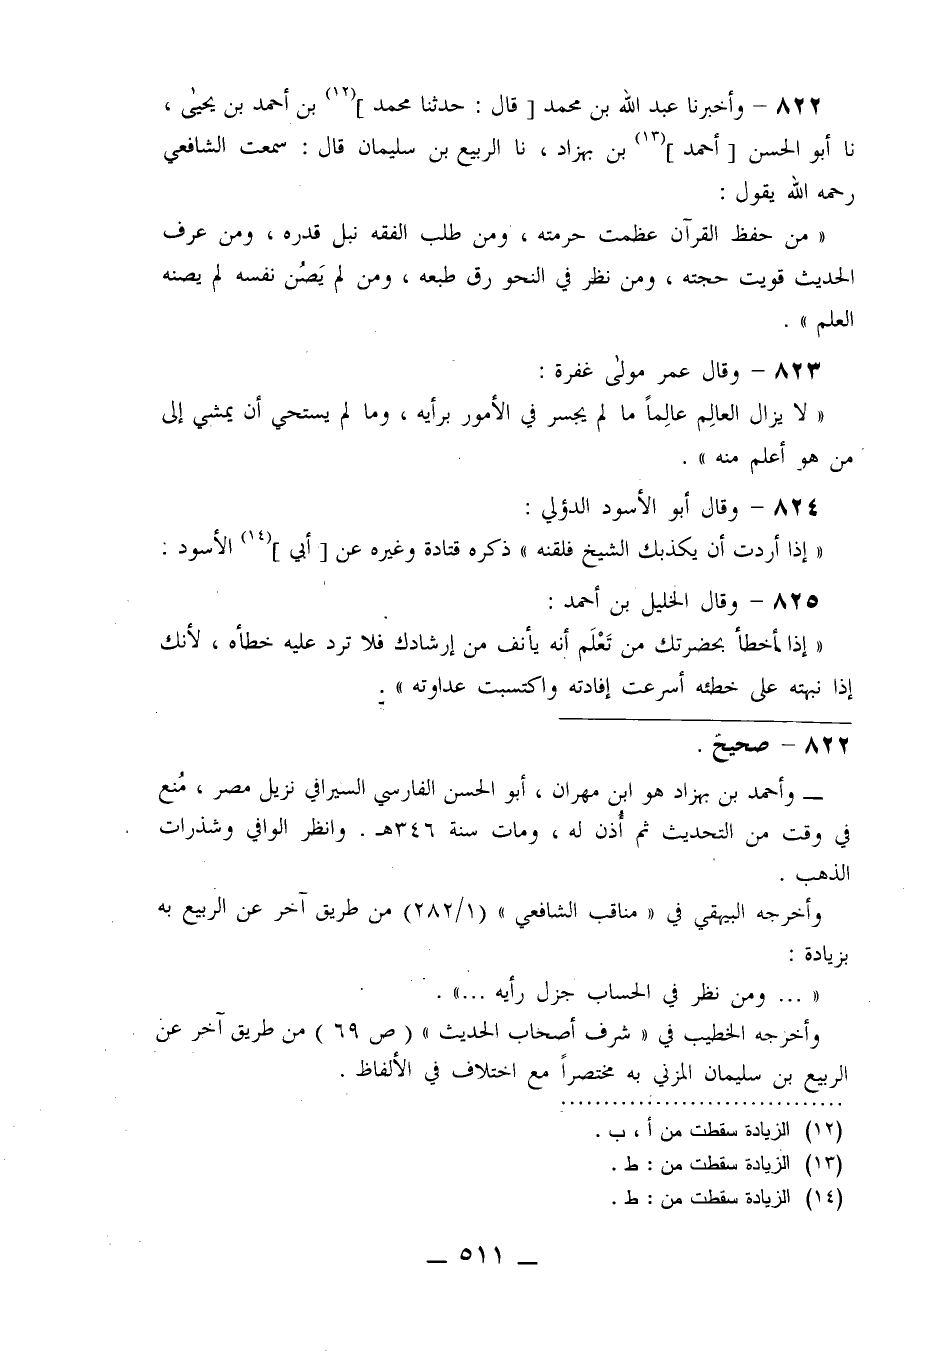 ٨٢٢ – وأخبرنا عبد الله بن محمد [ قال : حدثنا محمد ](١٢) بن أحمد بن يحيىٰ ،
نا أبو الحسن [ أحمد ](١٣) بن بهزاد ، نا الربيع بن سليمان قال : سمعت الشافعي
رحمه الله يقول :
« من حفظ القرآن عظمت حرمته ، ومن طلب الفقه نبل قدره ، ومن عرف
الحديث قويت حجته ، ومن نظر في النحو رق طبعه ، ومن لم يَصُن نفسه لم يصنه
العلم » .
٨٢٣ – وقال عمر مولىٰ غفرة :
« لا يزال العالِم عالِماً ما لم يجسر في الأمور برأيه ، وما لم يستحي أن يمشي إلى
من هو أعلم منه » .
٨٢٤ – وقال أبو الأسود الدؤلي :
« إذا أردت أن يكذبك الشيخ فلقنه » ذكره قتادة وغيره عن [ أبي ](١٤) الأسود :
٨٢٥ – وقال الخليل بن أحمد :
« إذا أخطأ بحضرتك من تَعْلَم أنه يأنف من إرشادك فلا ترد عليه خطأه ، لأنك
إذا نبهته على خطئه أسرعت إفادته واكتسبت عداوته » .
٨٢٢ – صحيحٌ .
ــ وأحمد بن بهزاد هو ابن مهران ، أبو الحسن الفارسي السيرافي نزيل مصر ، مُنع
في وقت من التحديث ثم أُذن له ، ومات سنة ٣٤٦هـ . وانظر الوافي وشذرات
الذهب .
وأخرجه البيهقي في « مناقب الشافعي » (٢٨٢/١) من طريق آخر عن الربيع به
بزيادة :
« ... ومن نظر في الحساب جزل رأيه ...» .
وأخرجه الخطيب في « شرف أصحاب الحديث » ( ص ٦٩ ) من طريق آخر عن
الربيع بن سليمان المزني به مختصراً مع اختلاف في الألفاظ .
(١٢) الزيادة سقطت من أ ، ب .
(١٣) الزيادة سقطت من : ط .
(١٤) الزيادة سقطت من : ط .
ــ ٥١١ ــ